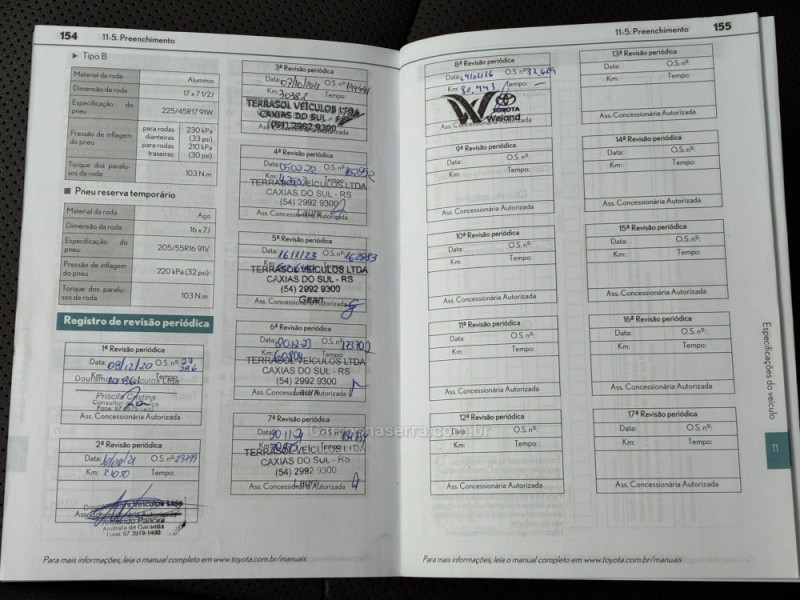 154
11-5. Preenchimento
► Tipo B
Material da roda Alumínio
Dimensão da roda 17 x 7 1/2J
Especificação do pneu 225/45R17 91W
Pressão de inflagem do pneu
para rodas dianteiras 230 kPa (33 psi)
para rodas traseiras 210 kPa (30 psi)
Torque dos parafusos da roda 103 N.m
■ Pneu reserva temporário
Material da roda Aço
Dimensão da roda 16 x 7J
Especificação do pneu 205/55R16 91V
Pressão de inflagem do pneu 220 kPa (32 psi)
Torque dos parafusos da roda 103 N.m
Registro de revisão periódica
1ª Revisão periódica
Data: 08/12/20 O.S. nº:
Km: Tempo:
Veículos Ltda
Priscila Cristina
Ass. Concessionária Autorizada
2ª Revisão periódica
Data: O.S. nº:
Km: Tempo:
Veículos Ltda
Ass. Concessionária Autorizada
3ª Revisão periódica
Data: 07/10/2021 O.S. nº:
Km: 30382 Tempo:
TERRASOL VEÍCULOS LTDA
CAXIAS DO SUL - RS
(54) 2992 9300
Ass. Concessionária Autorizada
4ª Revisão periódica
Data: O.S. nº:
Km: Tempo:
TERRASOL VEÍCULOS LTDA
CAXIAS DO SUL - RS
(54) 2992 9300
Ass. Concessionária Autorizada
5ª Revisão periódica
Data: O.S. nº:
Km: Tempo:
TERRASOL VEÍCULOS LTDA
CAXIAS DO SUL - RS
(54) 2992 9300
Ass. Concessionária Autorizada
6ª Revisão periódica
Data: O.S. nº:
Km: 60804 Tempo:
TERRASOL VEÍCULOS LTDA
CAXIAS DO SUL - RS
(54) 2992 9300
Ass. Concessionária Autorizada
7ª Revisão periódica
Data: O.S. nº:
Km: Tempo:
TERRASOL VEÍCULOS LTDA
CAXIAS DO SUL - RS
(54) 2992 9300
Ass. Concessionária Autorizada
Para mais informações, leia o manual completo em www.toyota.com.br/manuais
11-5. Preenchimento
155
8ª Revisão periódica
Data: O.S. nº:
Km: Tempo:
TOYOTA
Weiand
9ª Revisão periódica
Data: O.S. nº:
Km: Tempo:
Ass. Concessionária Autorizada
10ª Revisão periódica
Data: O.S. nº:
Km: Tempo:
Ass. Concessionária Autorizada
11ª Revisão periódica
Data: O.S. nº:
Km: Tempo:
Ass. Concessionária Autorizada
12ª Revisão periódica
Data: O.S. nº:
Km: Tempo:
Ass. Concessionária Autorizada
13ª Revisão periódica
Data: O.S. nº:
Km: Tempo:
Ass. Concessionária Autorizada
14ª Revisão periódica
Data: O.S. nº:
Km: Tempo:
Ass. Concessionária Autorizada
15ª Revisão periódica
Data: O.S. nº:
Km: Tempo:
Ass. Concessionária Autorizada
16ª Revisão periódica
Data: O.S. nº:
Km: Tempo:
Ass. Concessionária Autorizada
17ª Revisão periódica
Data: O.S. nº:
Km: Tempo:
Ass. Concessionária Autorizada
Especificações do veículo
11
Para mais informações, leia o manual completo em www.toyota.com.br/manuais